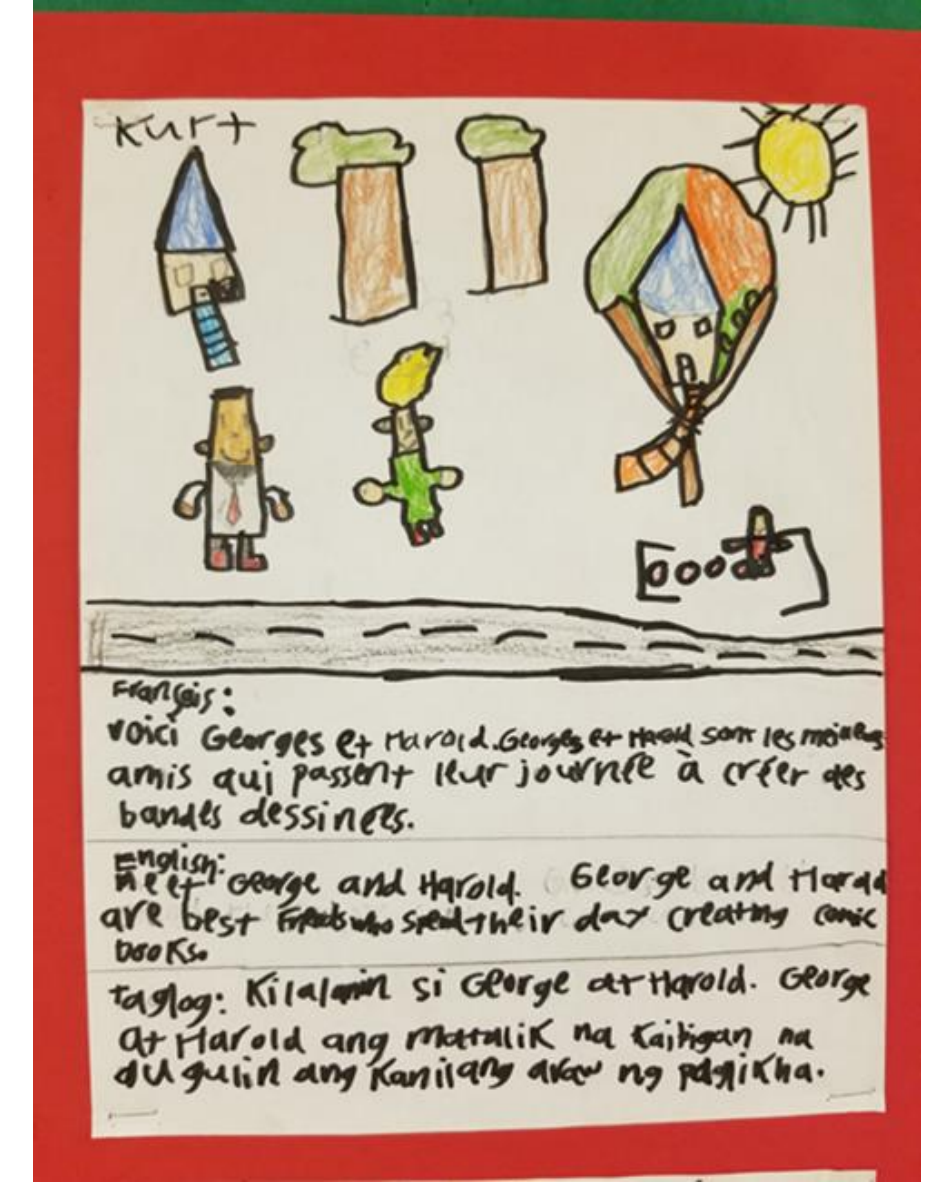 Kurt
Français:
Voici Georges et Harold. Georges et Harold sont les meilleurs
amis qui passent leur journée à créer des
bandes dessinées.
English:
Meet George and Harold. George and Harold
are best who spend their day creating comic
books.
taglog: Kilalanin si George at Harold. George
at Harold ang matalik na Kaibigan na
ang Kanilang araw ng pagikha.